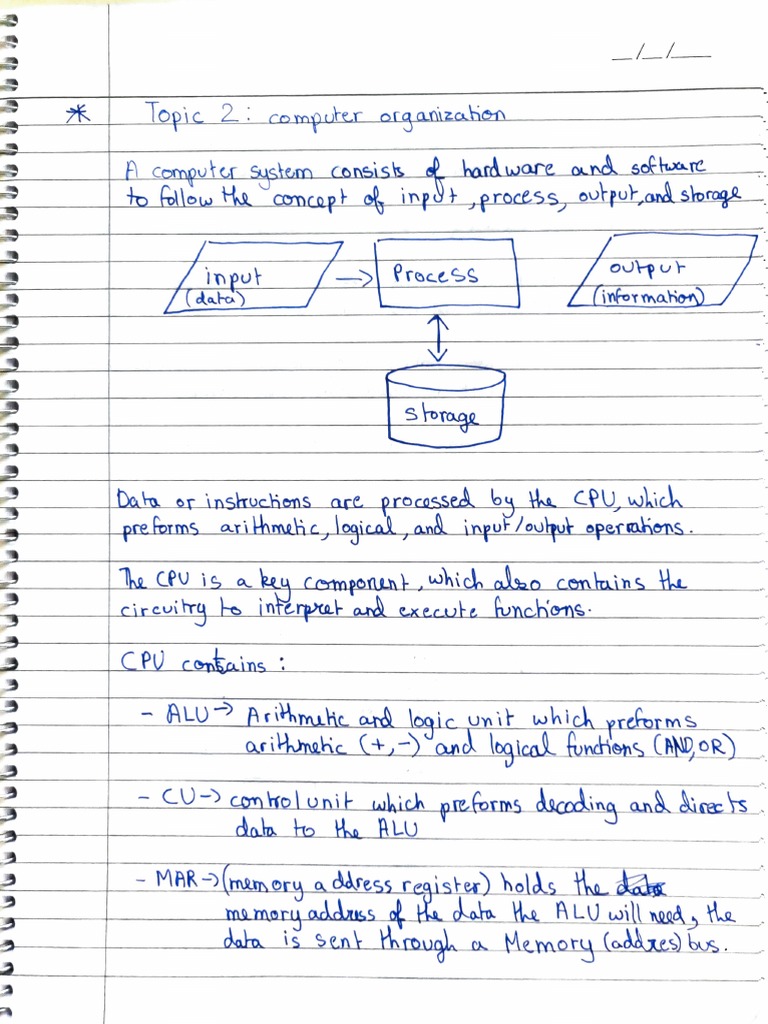 _/_/__
* Topic 2: computer organization
A computer system consists of hardware and software
to follow the concept of input, process, output, and storage
input → Process output
(data) (information)
storage
Data or instructions are processed by the CPU, which
preforms arithmetic, logical, and input/output operations.
The CPU is a key component, which also contains the
circuitry to interpret and execute functions.
CPU contains:
- ALU → Arithmetic and logic unit which preforms
arithmetic (+,-) and logical functions (AND, OR)
- CU → control unit which preforms decoding and directs
data to the ALU
- MAR → (memory address register) holds the
memory address of the data the ALU will need, the
data is sent through a Memory (addres) bus.